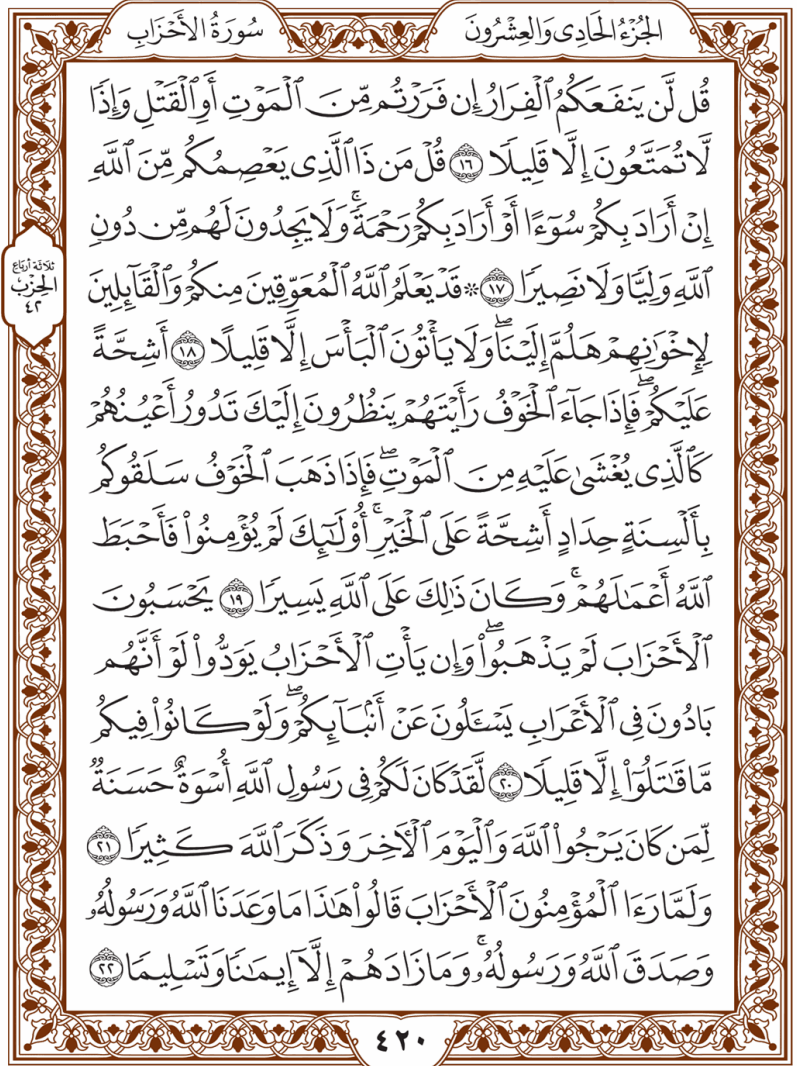 الجُزْءُ الحَادِي وَالعِشْرُونَ
سُورَةُ الأَحْزَابِ
قُل لَّن يَنفَعَكُمُ ٱلْفِرَارُ إِن فَرَرْتُم مِّنَ ٱلْمَوْتِ أَوِ ٱلْقَتْلِ وَإِذًا
لَّا تُمَتَّعُونَ إِلَّا قَلِيلًا ١٦ قُلْ مَن ذَا ٱلَّذِى يَعْصِمُكُم مِّنَ ٱللَّهِ
إِنْ أَرَادَ بِكُمْ سُوٓءًا أَوْ أَرَادَ بِكُمْ رَحْمَةً ۚ وَلَا يَجِدُونَ لَهُم مِّن دُونِ
ٱللَّهِ وَلِيًّا وَلَا نَصِيرًا ١٧ ۞ قَدْ يَعْلَمُ ٱللَّهُ ٱلْمُعَوِّقِينَ مِنكُمْ وَٱلْقَآئِلِينَ
لِإِخْوَٰنِهِمْ هَلُمَّ إِلَيْنَا ۖ وَلَا يَأْتُونَ ٱلْبَأْسَ إِلَّا قَلِيلًا ١٨ أَشِحَّةً
عَلَيْكُمْ ۖ فَإِذَا جَآءَ ٱلْخَوْفُ رَأَيْتَهُمْ يَنظُرُونَ إِلَيْكَ تَدُورُ أَعْيُنُهُمْ
كَٱلَّذِى يُغْشَىٰ عَلَيْهِ مِنَ ٱلْمَوْتِ ۖ فَإِذَا ذَهَبَ ٱلْخَوْفُ سَلَقُوكُم
بِأَلْسِنَةٍ حِدَادٍ أَشِحَّةً عَلَى ٱلْخَيْرِ ۚ أُو۟لَٰٓئِكَ لَمْ يُؤْمِنُوا۟ فَأَحْبَطَ
ٱللَّهُ أَعْمَٰلَهُمْ ۚ وَكَانَ ذَٰلِكَ عَلَى ٱللَّهِ يَسِيرًا ١٩ يَحْسَبُونَ
ٱلْأَحْزَابَ لَمْ يَذْهَبُوا۟ ۖ وَإِن يَأْتِ ٱلْأَحْزَابُ يَوَدُّوا۟ لَوْ أَنَّهُم
بَادُونَ فِى ٱلْأَعْرَابِ يَسْـَٔلُونَ عَنْ أَنۢبَآئِكُمْ ۖ وَلَوْ كَانُوا۟ فِيكُم
مَّا قَٰتَلُوٓا۟ إِلَّا قَلِيلًا ٢٠ لَّقَدْ كَانَ لَكُمْ فِى رَسُولِ ٱللَّهِ أُسْوَةٌ حَسَنَةٌ
لِّمَن كَانَ يَرْجُوا۟ ٱللَّهَ وَٱلْيَوْمَ ٱلْـَٔاخِرَ وَذَكَرَ ٱللَّهَ كَثِيرًا ٢١
وَلَمَّا رَءَا ٱلْمُؤْمِنُونَ ٱلْأَحْزَابَ قَالُوا۟ هَٰذَا مَا وَعَدَنَا ٱللَّهُ وَرَسُولُهُۥ
وَصَدَقَ ٱللَّهُ وَرَسُولُهُۥ ۚ وَمَا زَادَهُمْ إِلَّآ إِيمَٰنًا وَتَسْلِيمًا ٢٢
ثلاثة أرباع
الحزب
٤٢
٤٢٠